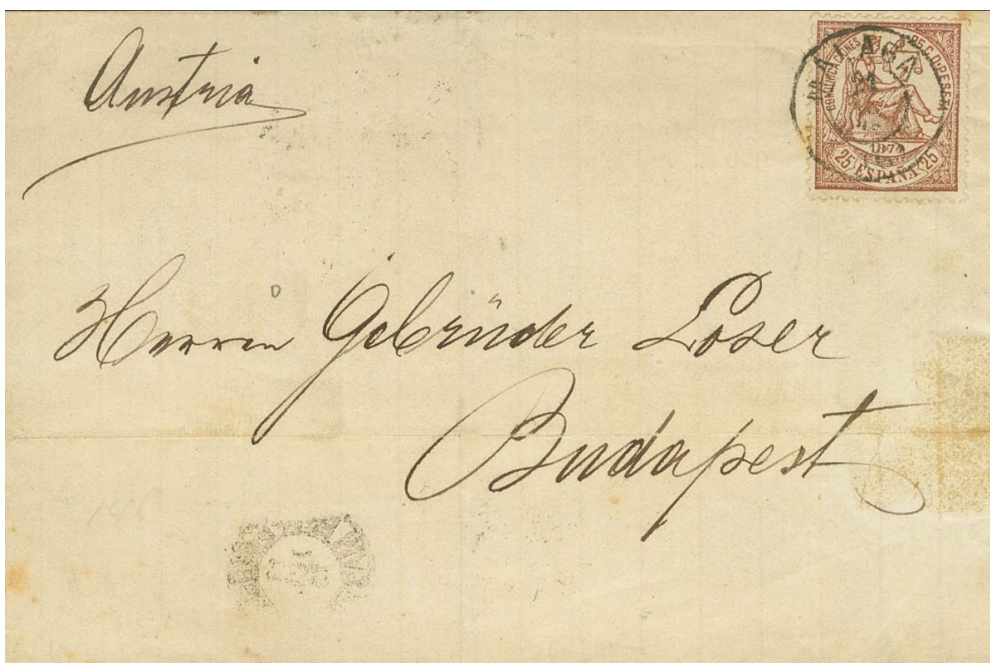 Austria
MALAGA
COMUNICACIONES 25 C. D PESETA
1874
25 ESPAÑA 25
Herren Gebrüder Loser
Budapest